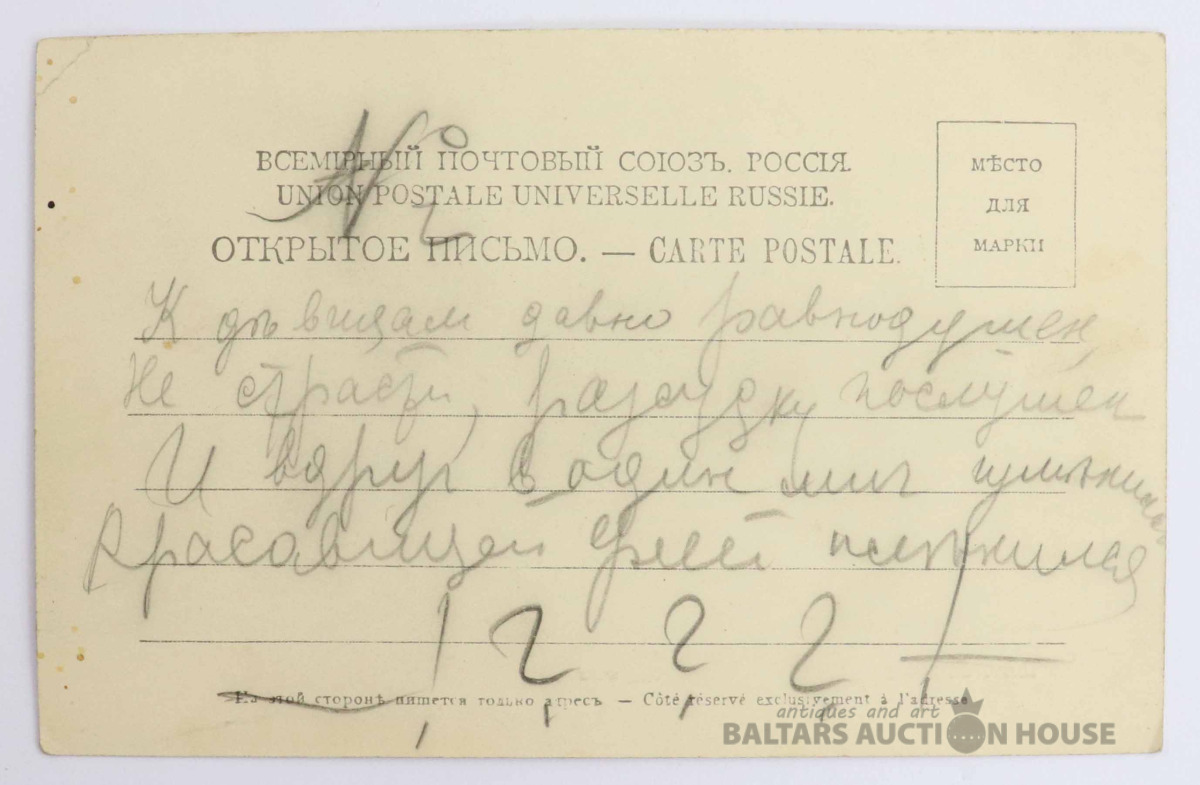 № 2
ВСЕМІРНЫЙ ПОЧТОВЫЙ СОЮЗЪ. РОССІЯ.
UNION POSTALE UNIVERSELLE RUSSIE.
ОТКРЫТОЕ ПИСЬМО. — CARTE POSTALE.
МѢСТО
ДЛЯ
МАРКИ
К дѣвицам давно равнодушен,
Не страсти, разсудку послушен
И вдруг в один миг
Красавицей феей плѣнился
! ? ? ? !
На этой сторонѣ пишется только адресъ — Côté réservé exclusivement à l'adresse
antiques and art
BALTARS AUCTION HOUSE